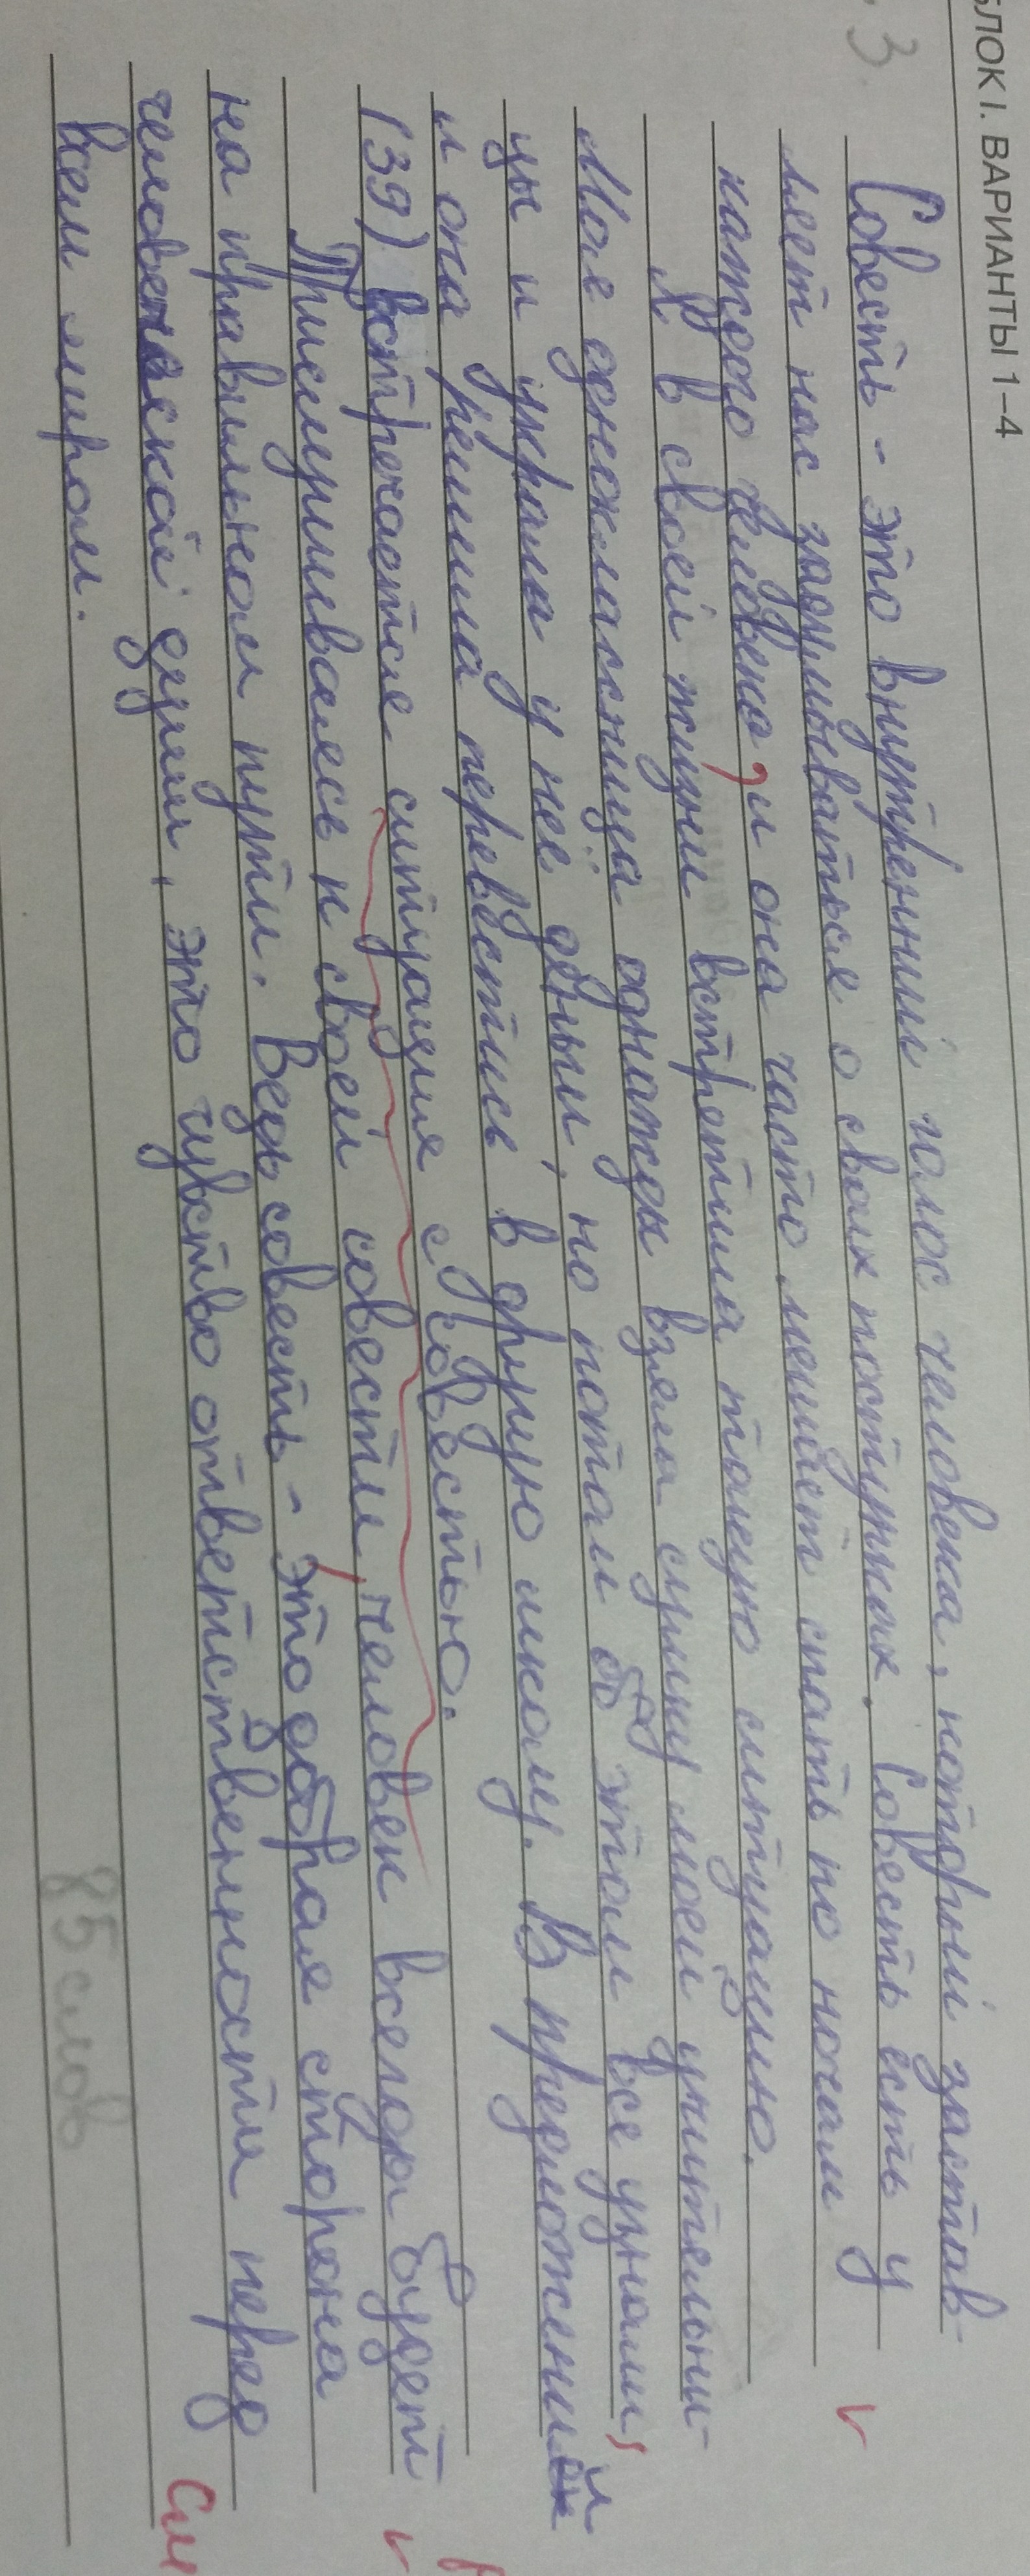 БЛОК I. ВАРИАНТЫ 1–4
3.
Совесть - это внутренний голос человека, который застав-
ляет нас задумываться о своих поступках. Совесть есть у
каждого человека, и она часто мешает спать по ночам
Я в своей жизни встретила такую ситуацию.
Моя одноклассница однажды взяла сумку моей учительни-
цы и украла у неё деньги, но потом об этом все узнали,
и она решила перевестись в другую школу. В предложении
(39) встречается ситуация с совестью.
Прислушиваясь к своей совести, человек всегда будет
на правильном пути. Ведь совесть - это добрая сторона
человеческой души, это чувство ответственности перед
всем миром.
85 слов